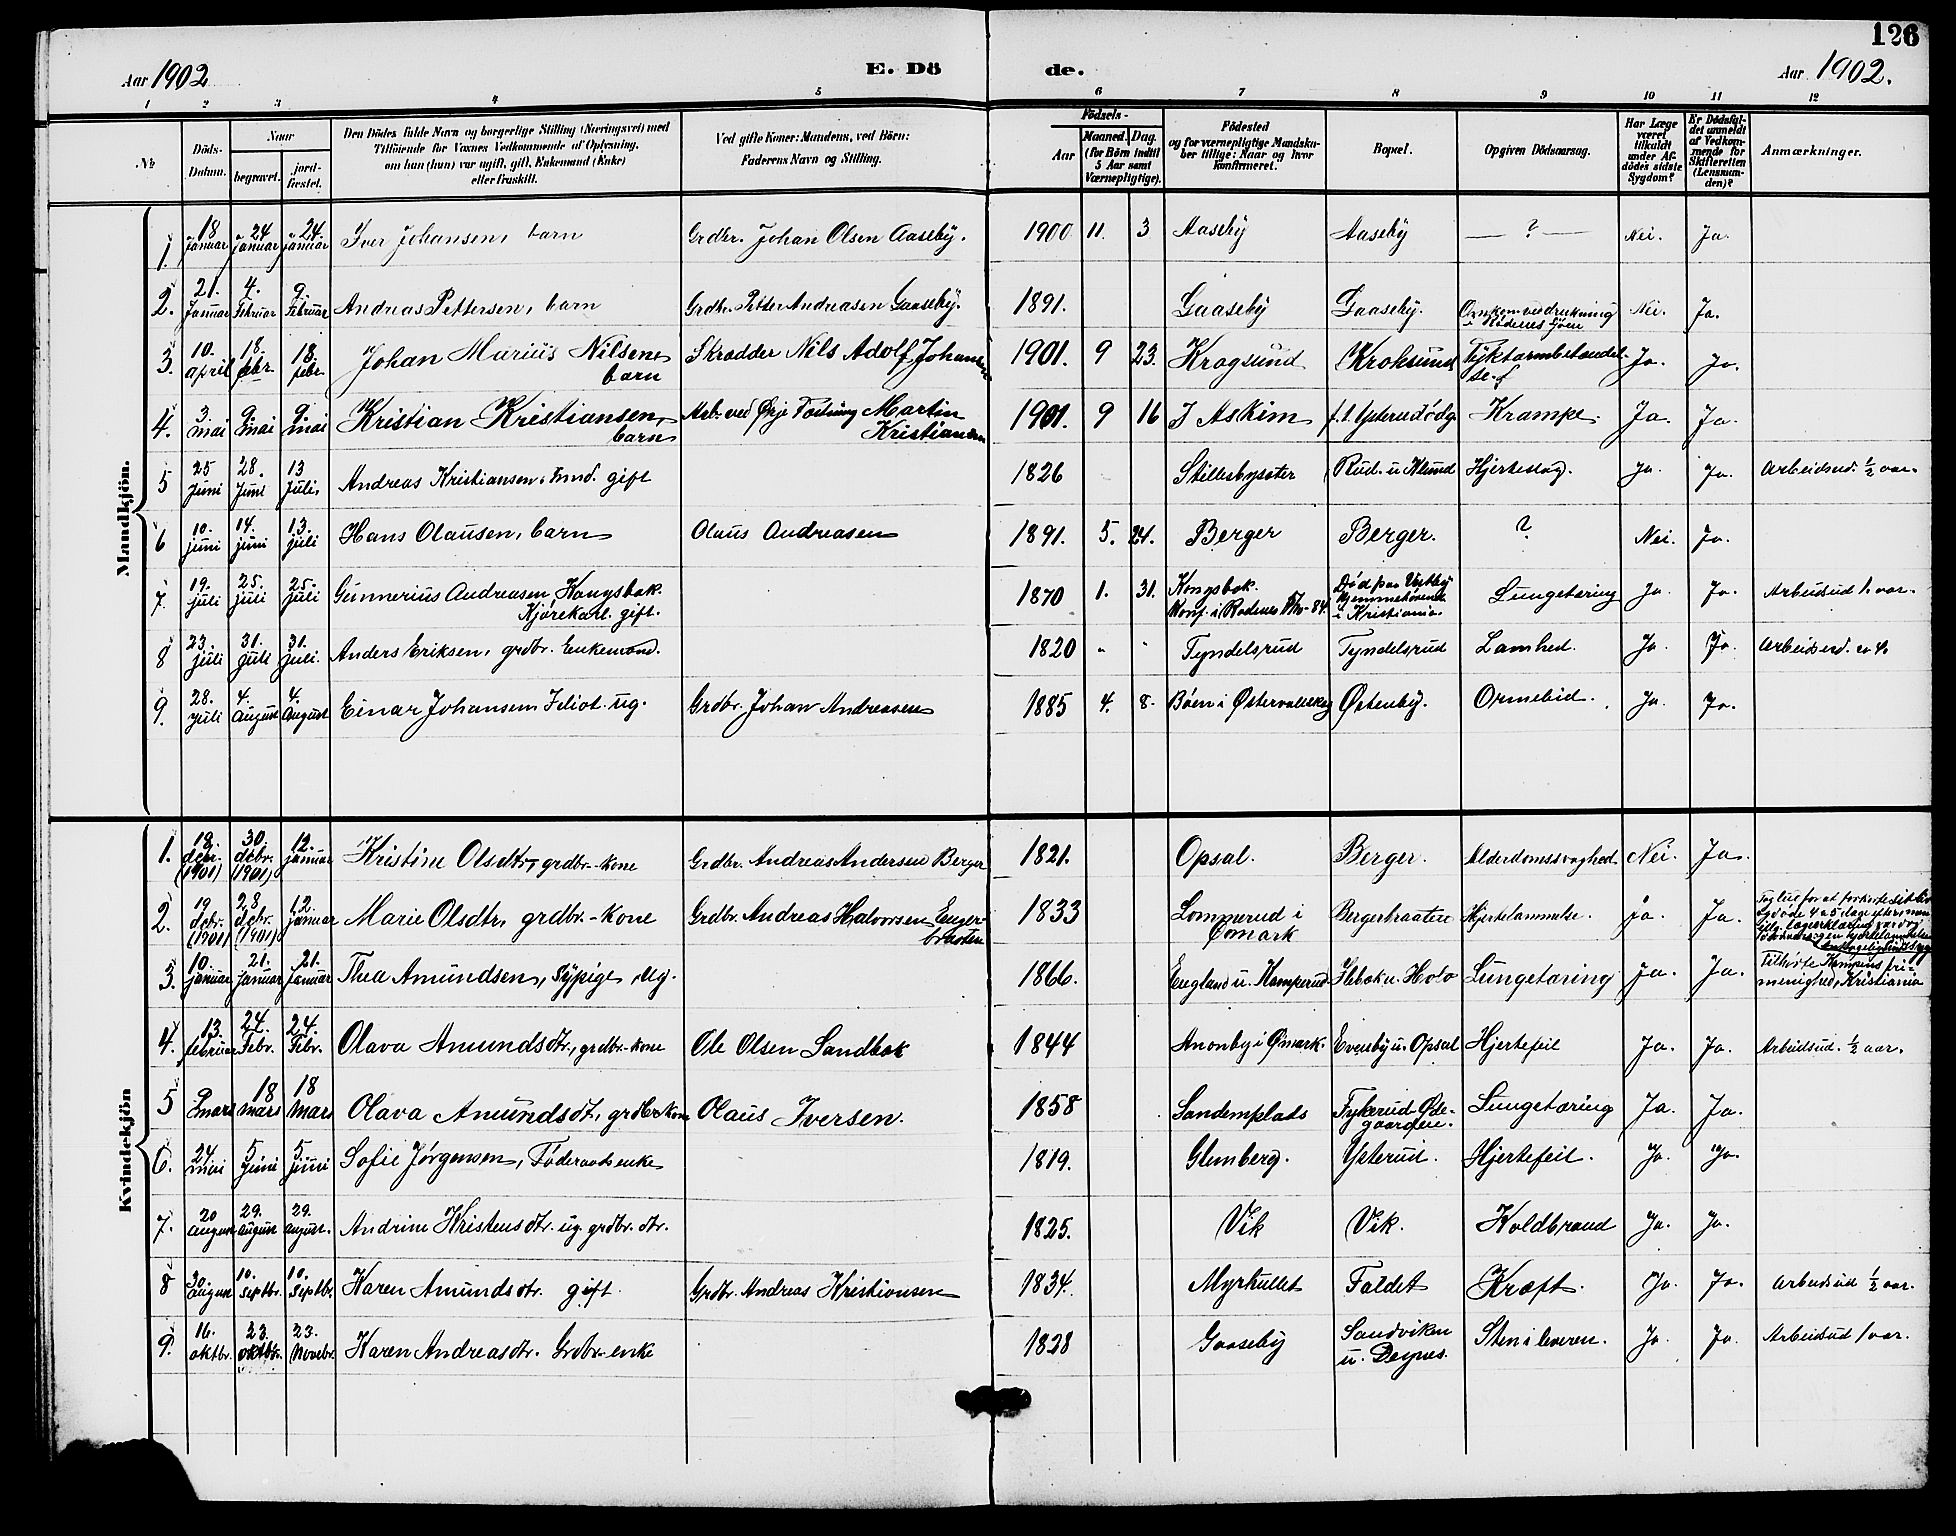 126
Aar 1902 E. Dö de. Aar 1902.
1 2 3 4 5 6 7 8 9 10 11 12
№ Döds-Datum. Naar begravet. jord-fæstet. Den Dödes fulde Navn og borgerlige Stilling (Næringsvei) med Tilföiende for Voxnes Vedkommende af Oplysning, om han (hun) var ugift, gift, Enkemand (Enke) eller fraskilt. Ved gifte Koner: Mandens, ved Börn: Faderens Navn og Stilling. Födsels- Aar Maaned. Dag. (for Börn indtil 5 Aar samt Værnepligtige). Födested og for værnepligtige Mandskaber tillige: Naar og hvor konfirmeret. Bopæl. Opgiven Dödsaarsag. Har Læge været tilkaldt under Afdödes sidste Sygdom? Er Dödsfaldet anmeldt af Vedkommende for Skifteretten (Lensmanden)? Anmærkninger.
Mandkjön.
1. 18 januar 24 januar 24. januar Iver Johansen, barn Grdbr. Johan Olsen Aaseby. 1900 11. 3 Aaseby Aaseby — ? — Nei. Ja.
2. 21. Januar 4. Februar 9. Februar Andreas Pettersen, barn Grdbr. Petter Andreasen Gaaseby. 1891. Gaaseby Gaaseby. Omkom ved drukning i Rödenes sjöen Nei. Ja.
3. 10. april 18. febr. 18. febr. Johan Marius Nilsen, barn Skrædder Nils Adolf Johansen 1901. 9 23. Krogsund Kroksund Ja. Ja.
4. 3 mai 9 mai 9. mai Kristian Kristiansen, barn Arb. ved Ørje Martin Kristiansen 1901. 9 16 I Askim Krampe. Ja. Ja.
5 25 Juni 28. Juni 13 Juli. Andreas Kristiansen, Innd. gift 1826 Rud. u Klund Hjerteslag. Ja. Ja. Arbeidsud. ½ aar.
6 10. juni 14. juni 13. juli Hans Olausen, barn Olaus Andreasen 1891. 5. 24. Berger Berger. ? Nei. Ja.
7. 19. juli 25. juli 25. juli Gunnerius Andreasen Kongsbak. Kjørekarl. gift. 1870 1. 31. Kongsbak. Konf. i Rødenes Død paa Vestby Hjemmehørende i Kristiania. Lungetæring Ja. Ja. Arbeidsud 1. aar.
8 23. juli 31. juli 31. juli. Anders Eriksen, grdbr. Enkemand. 1820 " " Tyndelsrud Tyndelsrud Lamhed. Ja. Ja. Arbeidsud.
9. 28. juli 4. August 4. August Einar Johansen. Idiot. ug. Grdbr. Johan Andreasen 1885 4. 8. Bøen i Østenby. Ormebid. Ja. Ja.
Kvindekjön
1. 18. debr. (1901) 30. debr. (1901) 12. januar Kristine Olsdtr, grdbr.-kone Grdbr. Andreas Andersen Berger 1821. Opsal. Berger. Alderdomssvaghed. Nei. Ja.
2. 19 debr. (1901) 28. debr. (1901) 12. januar Marie Olsdtr, grdbr.-kone Grdbr. Andreas Halvorsen Engerbraaten 1833 Lommerud i Ømark Bergerbraaten Hjertelammelse. Ja. Ja.
3. 10. januar 21. Januar 21. Januar Thea Amundsen, Sypige. Ug. 1866. England u. Kamperud Lungetæring Ja. Ja. Tilhørte Kampens frimenighed, Kristiania
4. 13. februar 24. Febr. 24. Febr. Olava Amundsdtr., grdbr.-kone Ole Olsen Sandbæk 1844 Anonby i Ømark. Evenby u. Opsal Hjertefeil Ja. Ja. Arbeidsud. ½ aar.
5 mars 18 mars 18 mars Olava Amundsdt, grdbr.kone Olaus Iversen. 1858 Sandemplads Fykerud-Ødegaarden. Lungetæring Ja. Ja.
6. 24 mai 5 juni 5. juni Sofie Jørgensen, Føderaadsenke 1819. Glenberg. Ysterud. Hjertefeil. Ja. Ja.
7. 20 august 29. august 29. august. Andrine Kristensdtr. ug. grdbr. dtr. 1825. Vik Vik. Koldbrand Ja. Ja.
8 30 august 10. Septbr. 10. Septbr. Karen Amundsdtr. gift. Grdbr. Andreas Kristiansen 1834. Myrhullet Faldet Kræft. Ja. Ja. Arbeidsud ½ aar.
9. 16. oktbr. 23. oktbr. 23. Novebr. Karen Andreasdtr. Grdbr-enke 1828 Gaaseby Sandviken u. Deynes. Sten i leveren. Ja. Ja. Arbeidsud 1 aar.